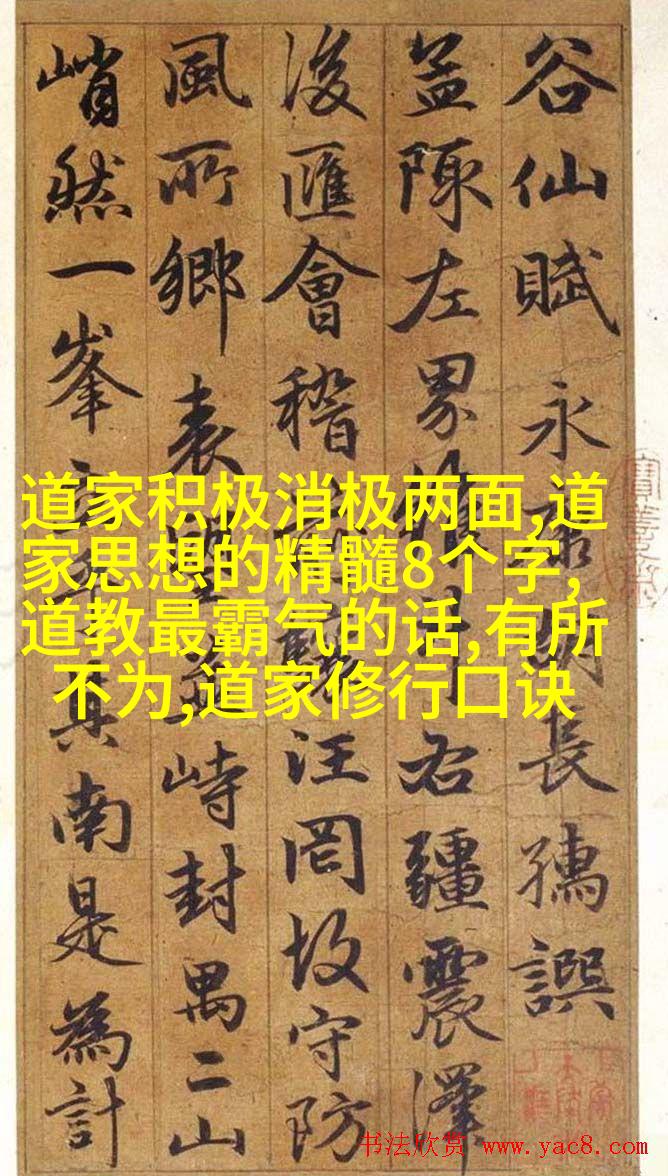 谷仙賦 永 長孺譔
益陳左界 右疆震澤
浚匯會稽 汪罔故守防
風所鄉表 峙封禺二山
峭然一峯 其南是為計
道家积极消极两面,道
家思想的精髓8个字,
道教最霸气的话,有所
不为,道家修行口诀
书法欣赏 www.yac8.com